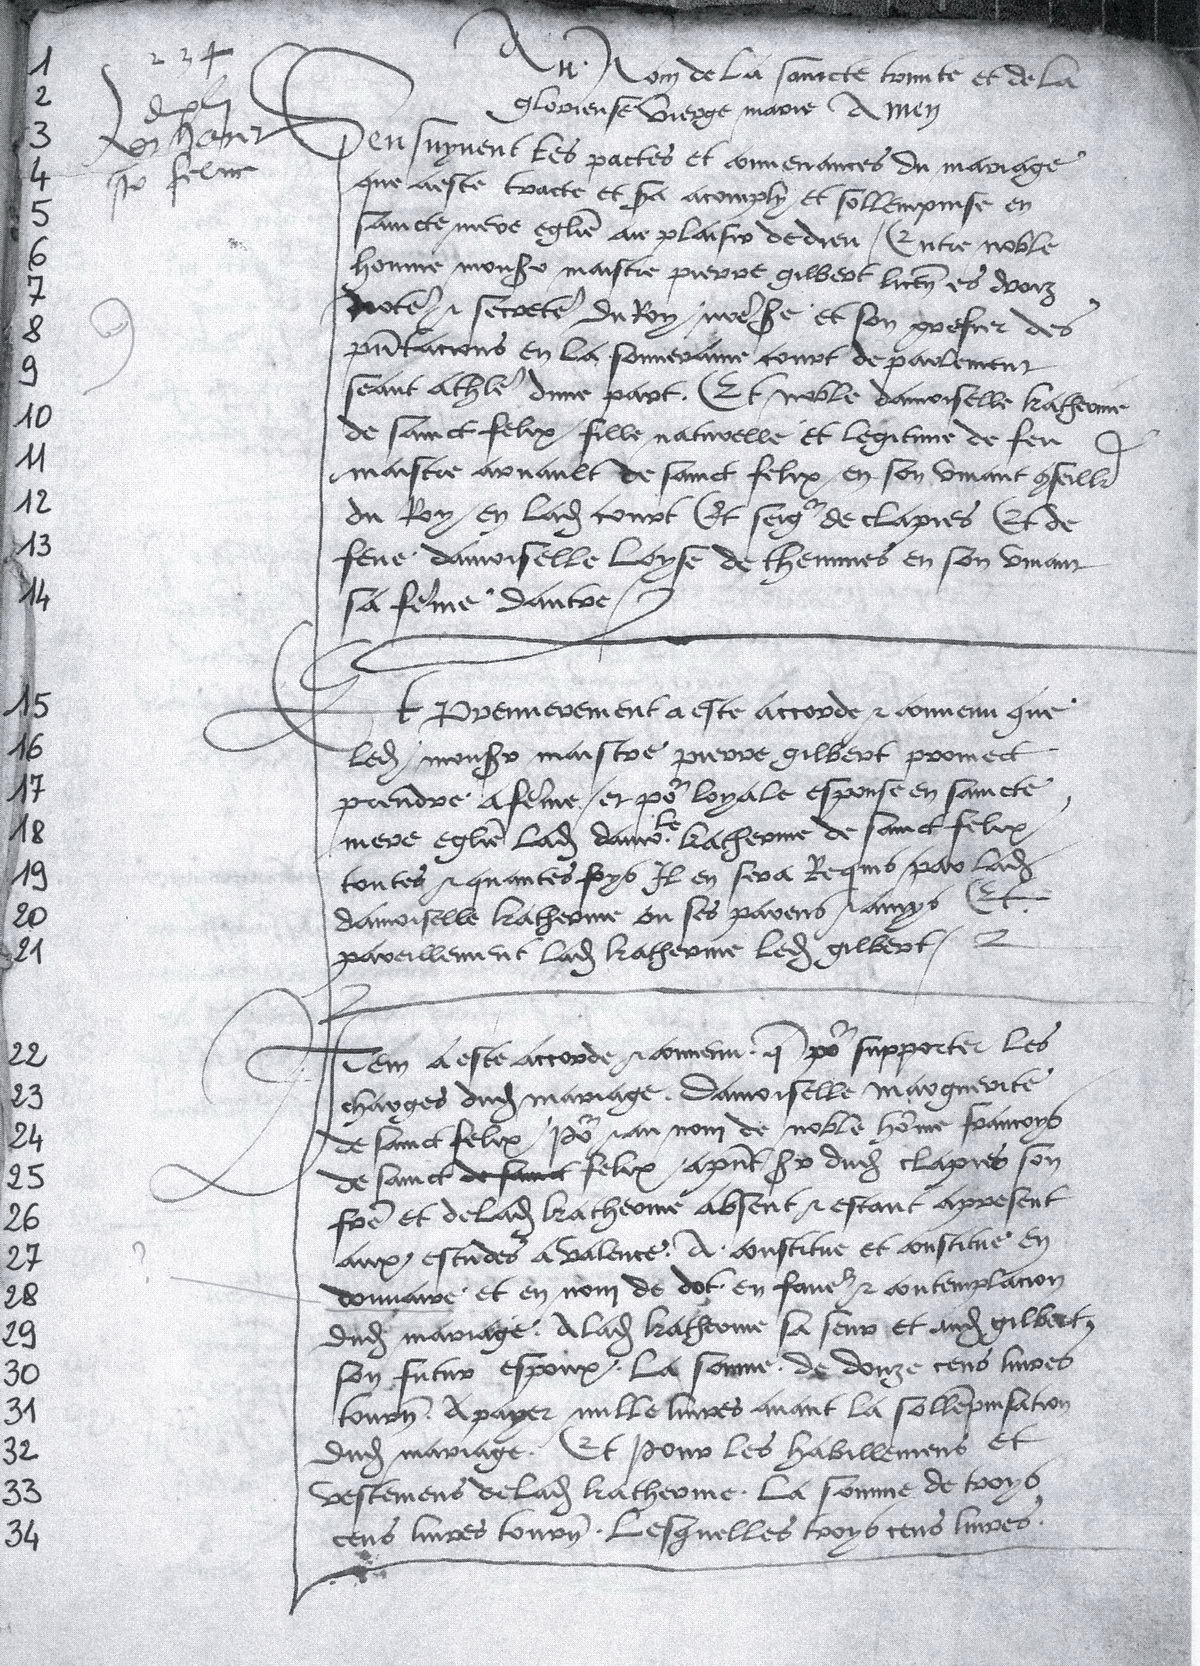 2 3 4
1 Au Nom de La saincte trinite et de La
2 glorieuse vierge marie Amen
3 Sensuyvent Les pactes et convenances du mariage
4 que a este tracte et sa acomply et sollempnise en
5 saincte mere eglise au plaisir de dieu / Entre noble
6 homme monsr maistre pierre gilbert licen es droiz
7 note & secrete du Roy et son greffier des
8 pntacions en La souveraine court de parlement
9 seant a thle dune part. Et noble damoiselle katherine
10 de sainct felix / fille naturelle et legitime de feu
11 maistre arnault de sainct felix / en son vivant conseille
12 du Roy / en Lad court Et seigr de clapies Et de
13 feue damoiselle Loyse de themines en son vivant
14 sa feme dautre /
15 Et Premierement a este accorde & convenu que
16 Led / monsr maistre pierre gilbert promect
17 prendre a feme / et por loyale espouse en saincte
18 mere eglise Lad damolle katherine de sainct felix /
19 toutes & quantes foys Il en sera Requis par lad
20 damoiselle katherine ou ses parens & amys Et
21 pareillement Lad katherine Led gilbert /
22 Item a este accorde & convenu. q por supporter Les
23 charges dud mariage. Damoiselle marguerite
24 de sainct felix / por & au nom de noble home francoys
25 de sainct de sainct felix / apnt sr dud clapies son
26 fre et de Lad katherine absent & estant a present
27 aux / estudes a valence. A constitue et constitue en
28 douaire et en nom de dot. en faver & contemplacion
29 dud mariage. A Lad katherine sa seur et aud gilbert /
30 son futur espoux /. La somme de douze cens livres
31 tourn. A payer mille livres avant La sollempnisation
32 dud mariage. Et Pour Les habillemens et
33 vestemens de Lad katherine. La somme de troys
34 cens livres tourn. Lesquelles troys cens livres.